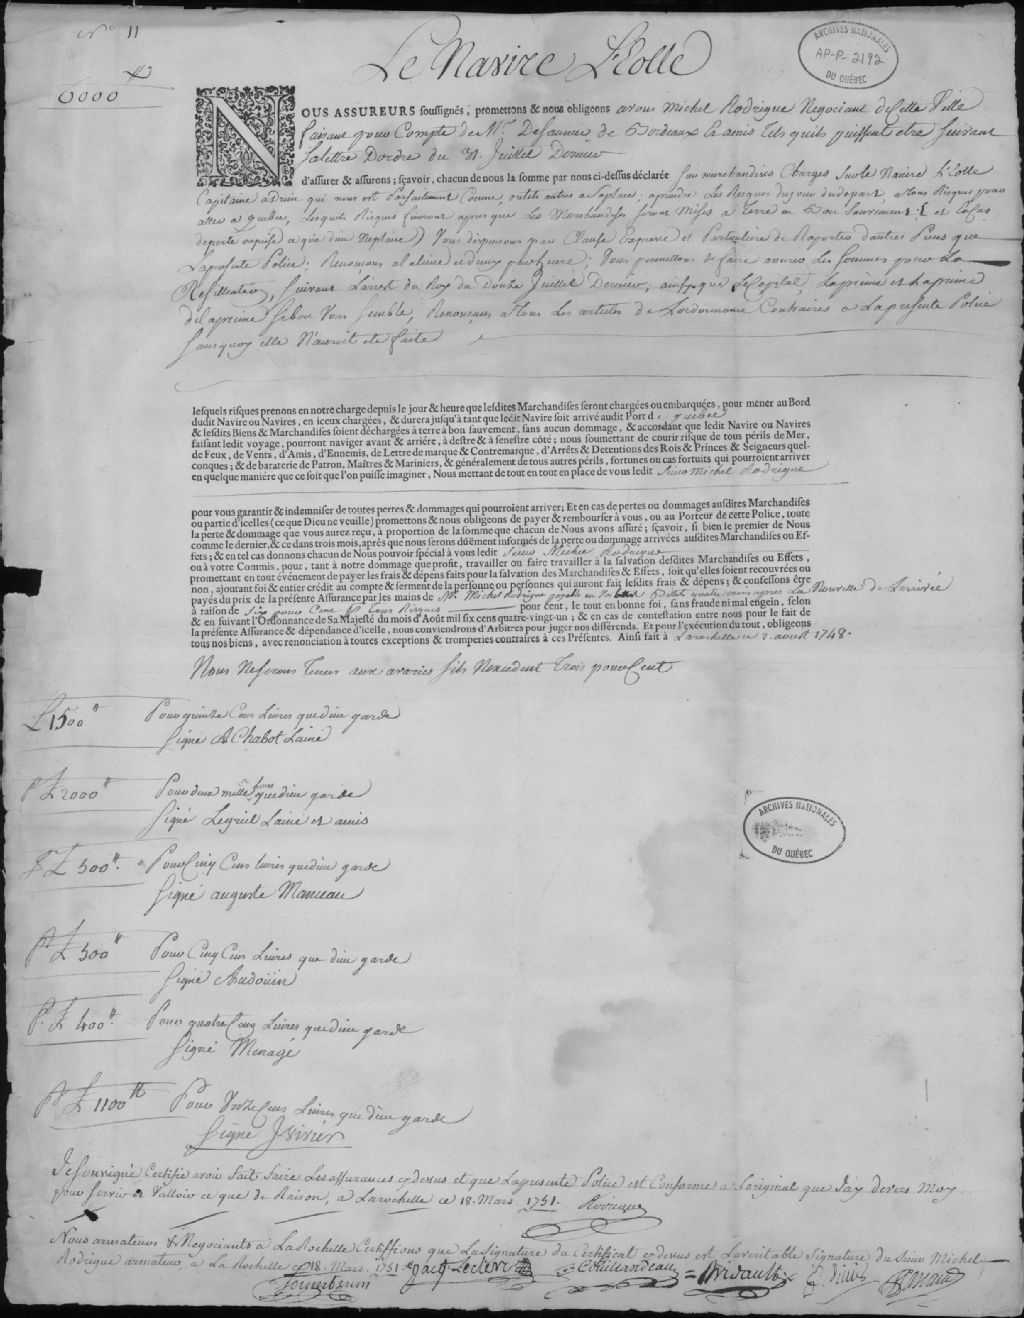 N° 11
Le Navire L'Eolle
6000
ARCHIVES NATIONALES
AP-P-2192
DU QUÉBEC
NOUS ASSUREURS soussignés, promettons & nous obligeons avous Michel Rodrigue Negociant de Cette Ville
faisant pour Compte de Mr. Desaunier de Bordeaux & amis tels quils puissent etre Suivant
Sa lettre Dordre du 31. Juillet Dernier
d'assurer & assurons; sçavoir, chacun de nous la somme par nous ci-dessus déclarée Sur marchandises Chargés Sur le Navire L'Eolle
Capitaine qui nous est Parfaitement Connu, ou tels autres a Sa place; a prendre Les Risques du jour du depart a Tous Risques pour
aller a quebec, Lesquels Risques finiront apres que Les Marchandises seront Mises a Terre a Bon Sauvement; Et En Cas
de perte ou prise ce qu'a dieu Neplaise) Vous dispensons par Clause Expresse et Particuliere de Raporter d'autres Pieces que
La presente Police; Renonçons al Vous permettons de faire assurer Les Sommes pour La
Restitution, Suivant Larest du Roy du Douze Juillet Dernier; ainsy que Le Capital, La prime et La prime
de La prime Si bon Vous Semble, Renonçons a Tous Les articles de Lordonnance Contraires a La presente Police
Sans quoy elle N'auroit ete faite
lesquels risques prenons en notre charge depuis le jour & heure que lesdites Marchandises seront chargées ou embarquées, pour mener au Bord
dudit Navire ou Navires, en iceux chargées, & durera jusqu'à tant que ledit Navire soit arrivé audit Port de quebec
& lesdits Biens & Marchandises soient déchargées à terre à bon sauvement, sans aucun dommage, & accordant que ledit Navire ou Navires
faisant ledit voyage, pourront naviger avant & arriére, à destre & à senestre côté; nous soumettant de courir risque de tous périls de Mer,
de Feux, de Vents, d'Amis, d'Ennemis, de Lettre de marque & Contremarque, d'Arrêts & Detentions des Rois & Princes & Seigneurs quel-
conques; & de baraterie de Patron, Maîtres & Mariniers, & généralement de tous autres périls, fortunes ou cas fortuits qui pourroient arriver
en quelque maniére que ce soit que l'on puisse imaginer, Nous mettant de tout en tout en place de vous ledit Sieur Michel Rodrigue
pour vous garantir & indemniser de toutes pertes & dommages qui pourroient arriver; Et en cas de pertes ou dommages ausdites Marchandises
ou partie d'icelles (ce que Dieu ne veuille) promettons & nous obligeons de payer & rembourser à vous, ou au Porteur de cette Police, toute
la perte & dommage que vous aurez reçu, à proportion de la somme que chacun de Nous avons assuré; sçavoir, si bien le premier de Nous
comme le dernier, & ce dans trois mois, après que nous serons dûëment informés de la perte ou dommage arrivées ausdites Marchandises ou Ef-
fets; & en tel cas donnons chacun de Nous pouvoir spécial à vous ledit Sieur Michel Rodrigue
ou à votre Commis, pour, tant à notre dommage que profit, travailler ou faire travailler à la salvation desdites Marchandises ou Effets,
promettant en tout événement de payer les frais & dépens faits pour la salvation des Marchandises & Effets, soit qu'elles soient recouvrées ou
non, ajoutant foi & entier crédit au compte & serment de la personne ou personnes qui auront fait lesdits frais & dépens; & confessons être
payés du prix de la présente Assurance par les mains de Mr. Michel Rodrigue payable en Billets quatre mois apres La Nouvelle de Larrivée
à raison de Six pour Cent Tous Risques pour cent, le tout en bonne foi, sans fraude ni mal engein, selon
& en suivant l'Ordonnance de Sa Majesté du mois d'Août mil six cens quatre-vingt-un; & en cas de contestation entre nous pour le fait de
la présente Assurance & dépendance d'icelle, nous conviendrons d'Arbitres pour juger nos différends. Et pour l'exécution du tout, obligeons
tous nos biens, avec renonciation à toutes exceptions & tromperies contraires à ces Présentes. Ainsi fait à Larochelle ce 2. aoust 1748.
Nous Neserons Tenus aux avaries Sils Nexcedent Trois pour Cent
£ 1500tt Pour quinze Cens Livres que dieu garde
Signé A Chabot Lainé
Pr £ 2000tt Pour deux mille livres que dieu garde
Signé Legriel Lainé et amis
Pr £ 500tt. Pour Cinq Cens livres que dieu garde
Signé auguste Manceau
Pr £ 500tt Pour Cinq Cens Livres que dieu garde
Signé Audoüin
Pr £ 400tt. Pour quatre Cens Livres que dieu garde
Signé Menagé
Pr £ 1100tt Pour Onze Cens Livres que dieu garde
Signé J Vivier
ARCHIVES NATIONALES
DU QUÉBEC
Je Souvigné Certifie avoir fait faire Les assurances cy dessus et que La presente Police est Conforme a Loriginal que J'ay devers Moy
pour Servir & Valloir ce que de Raison, a Larochelle ce 18. Mars. 1751. Rodrigue
Nous armateurs & Negociants à La Rochelle Certiffions que La Signature du Certificat cy dessus est La veritable Signature du Sieur Michel
Rodrigue armateur, à La Rochelle ce 18. Mars. 1751. Jacq. Leclerc